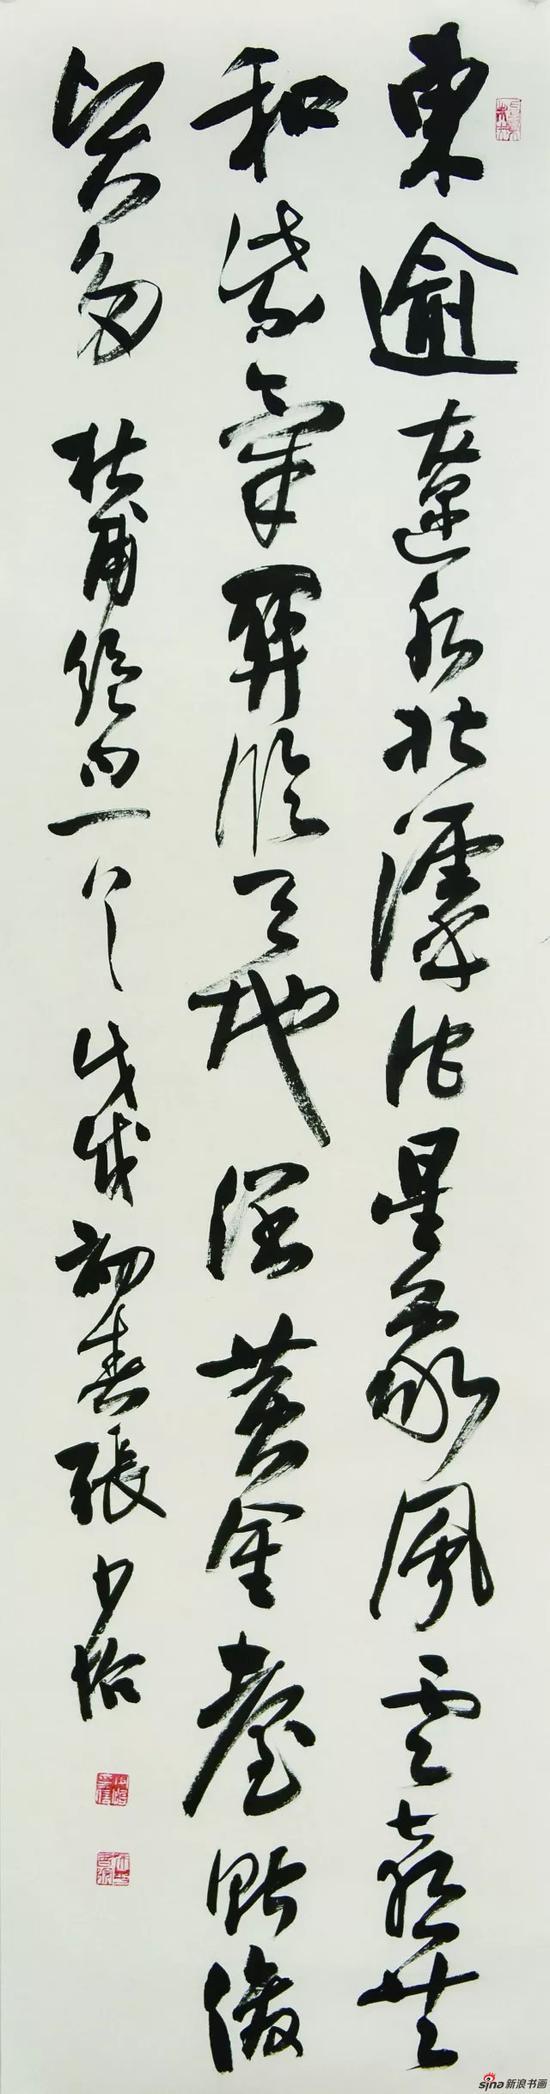 東逾遼水北滹沱星象風雲喜共
和紫氣關臨天地闊黃金臺貯俊
賢多 杜甫絕句一首 戊戌初春張少怡
sina新浪书画